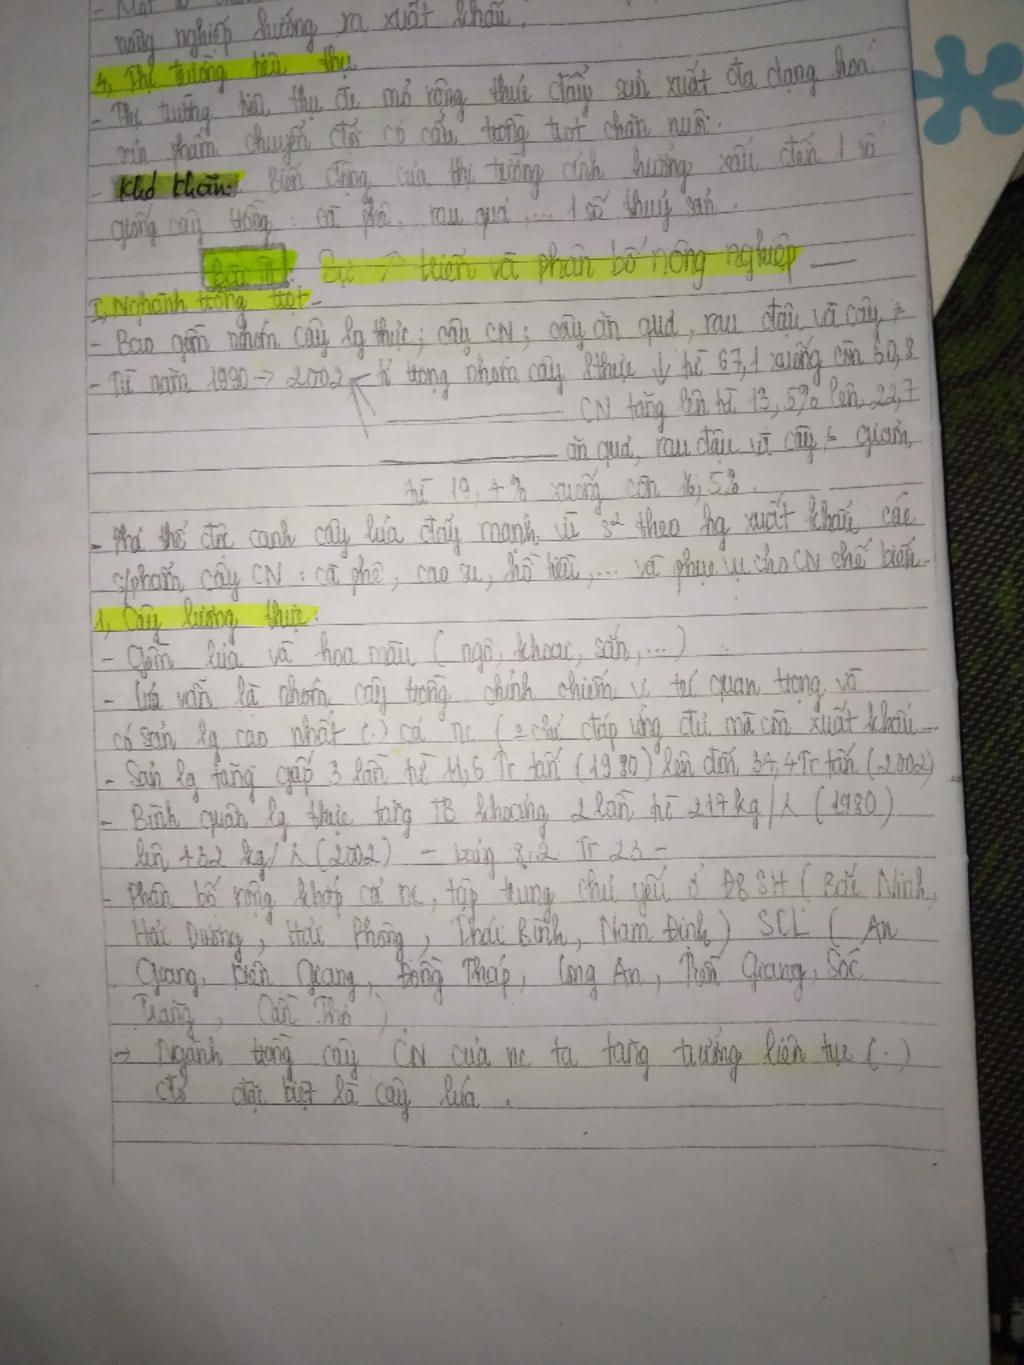 nông nghiệp hướng ra xuất khẩu.
4, Thị trường tiêu thụ
- Thị trường tiêu thụ đc mở rộng thúc đẩy sản xuất đa dạng hoá
sản phẩm chuyển đổi cơ cấu trồng trọt chăn nuôi.
- Khó khăn: Biến động của thị trường ảnh hưởng xấu đến 1 số
giống cây trồng: cà phê, rau quả, ... 1 số thuỷ sản.
Bài : Sự ↗ triển và phân bố nông nghiệp
I, Nghành trồng trọt
- Bao gồm nhóm cây lg thực; cây CN; cây ăn quả, rau đậu và cây ≠
- Từ năm 1990 → 2002 tỉ trọng nhóm cây lthực ↓ từ 67,1 xuống còn 60,8
CN tăng lên từ 13,5% lên 22,7
ăn quả, rau đậu và cây ≠ giảm,
từ 19,4% xuống còn 16,5%.
- Phá thế độc canh cây lúa đẩy mạnh theo hg xuất khẩu các
s/phẩm cây CN: cà phê, cao su, hồ tiêu, ... và phục vụ cho CN chế biến
1, Cây lương thực
- Gồm lúa và hoa màu (ngô, khoai, sắn, ...)
- Lúa vẫn là nhóm cây trồng chính chiếm vị trí quan trọng và
có sản lg cao nhất (.) cả nc ( chỉ đáp ứng đủ mà còn xuất khẩu
- Sản lg tăng gấp 3 lần từ 11,6 Tr tấn (1980) lên đến 34,4 Tr tấn (2002)
- Bình quân lg thực tăng TB khoảng 2 lần từ 217 kg/ (1980)
lên 432 kg/ (2002) - bảng 8.2 Tr 29 -
- Phân bố rộng khắp cả nc, tập trung chủ yếu ở ĐBSH (Bắc Ninh,
Hải Dương, Hải Phòng, Thái Bình, Nam Định) SCL (An
Giang, Kiên Giang, Đồng Tháp, Long An, Tiền Giang, Sóc
Trăng, Cần Thơ)
→ Ngành trồng cây CN của nc ta tăng trưởng liên tục (.)
đó đặc biệt là cây lúa.